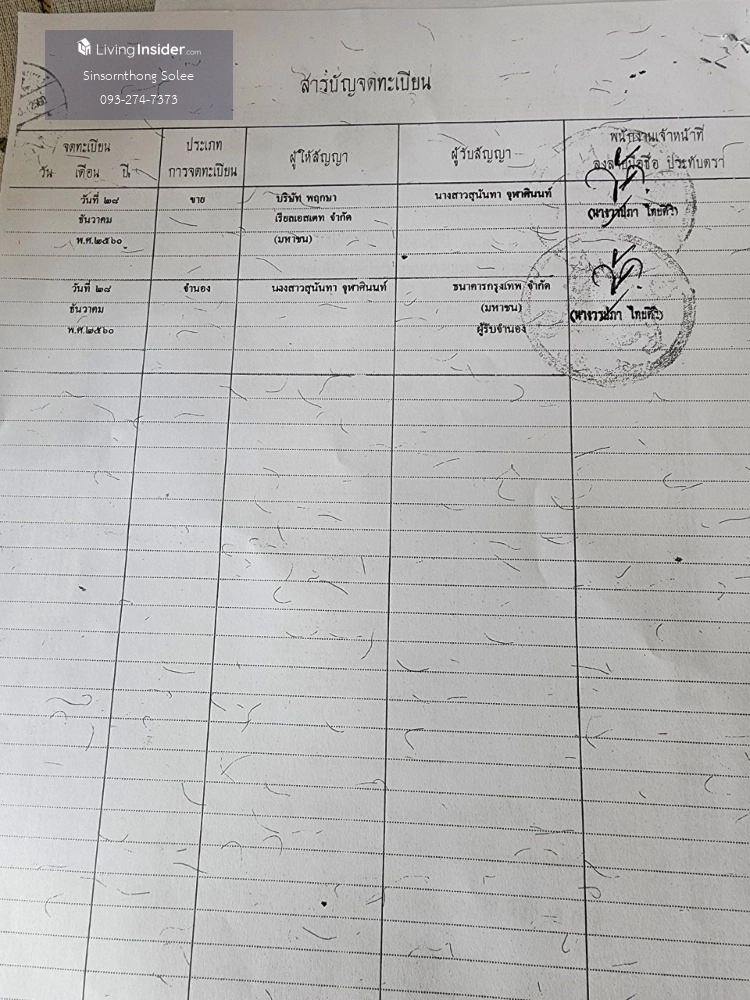 LivingInsider.com
Sinsornthong Solee
093-274-7373
สารบัญจดทะเบียน
จดทะเบียน
วัน เดือน ปี
ประเภท
การจดทะเบียน
ผู้ให้สัญญา
ผู้รับสัญญา
พนักงานเจ้าหน้าที่
ลงลายมือชื่อ ประทับตรา
วันที่ ๒๘
ธันวาคม
พ.ศ.๒๕๖๐
ขาย
บริษัท พฤกษา
เรียลเอสเตท จำกัด
(มหาชน)
นางสาวสุนันทา จุฬาศินนท์
วันที่ ๒๘
ธันวาคม
พ.ศ.๒๕๖๐
จำนอง
นางสาวสุนันทา จุฬาศินนท์
ธนาคารกรุงเทพ จำกัด
(มหาชน)
ผู้รับจำนอง